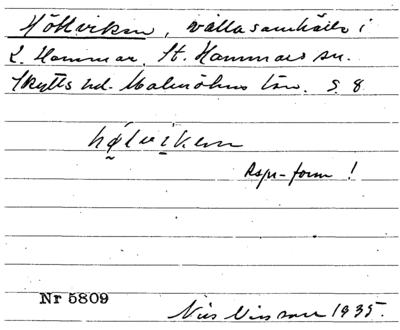 Höllviken, villasamhälle i
L. Hammar, St. Hammars sn.
Skytts hd. Malmöhus län. S. 8
hø̰lvi̱ken
Rspr-form!
Nr 5809
Nils Nilsson 1935.